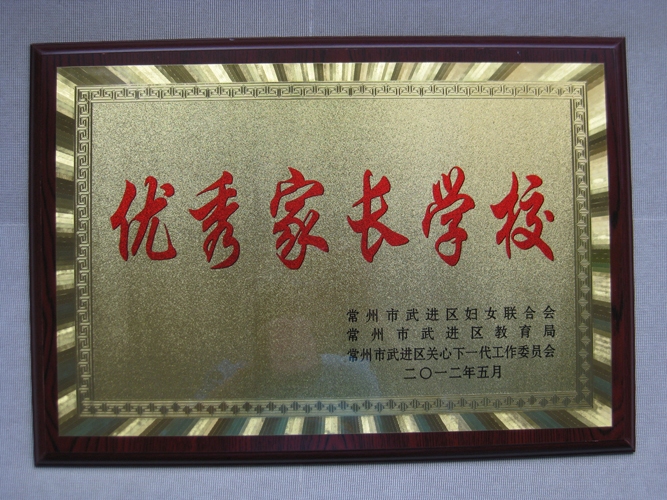 优秀家长学校
常州市武进区妇女联合会
常州市武进区教育局
常州市武进区关心下一代工作委员会
二〇一二年五月